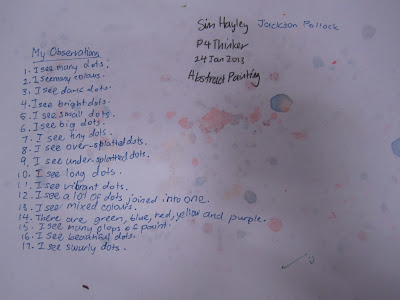 Sim Hayley Jackson Pollock
P4 Thinker
24 Jan 2013
Abstract Painting
My Observations
1. I see many dots.
2. I see many colours.
3. I see dark dots.
4. I see bright dots.
5. I see small dots.
6. I see big dots.
7. I see tiny dots.
8. I see over-splatted dots.
9. I see under-splatted dots.
10. I see long dots.
11. I see vibrant dots.
12. I see a lot of dots joined into one.
13. I see mixed colours.
14. There are green, blue, red, yellow and purple.
15. I see many plops of paint.
16. I see beautiful dots.
17. I see swurly dots.